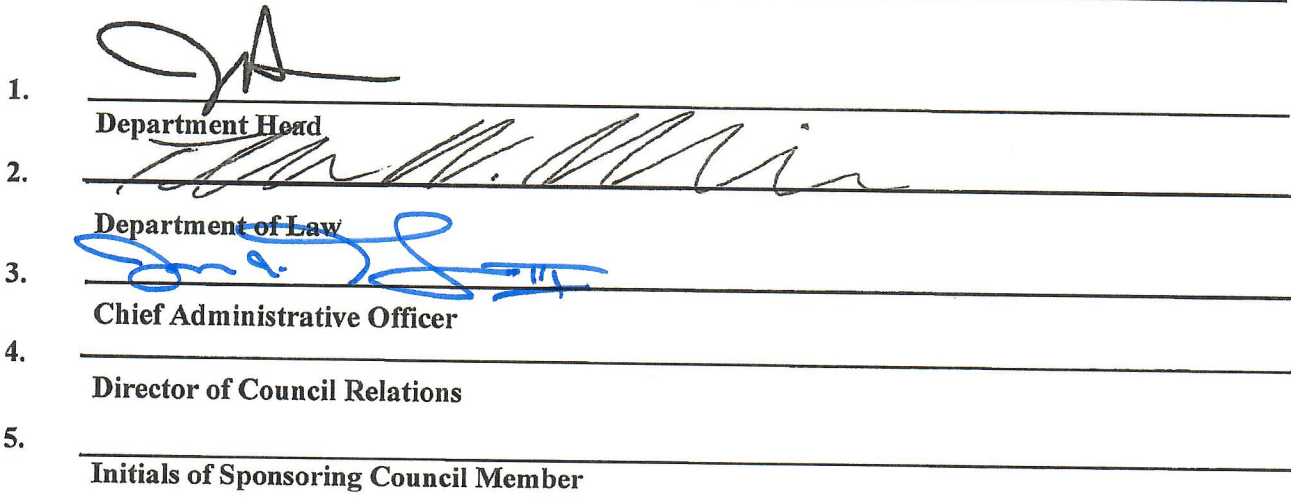 1.
Department Head
2.
Department of Law
3.
Chief Administrative Officer
4.
Director of Council Relations
5.
Initials of Sponsoring Council Member